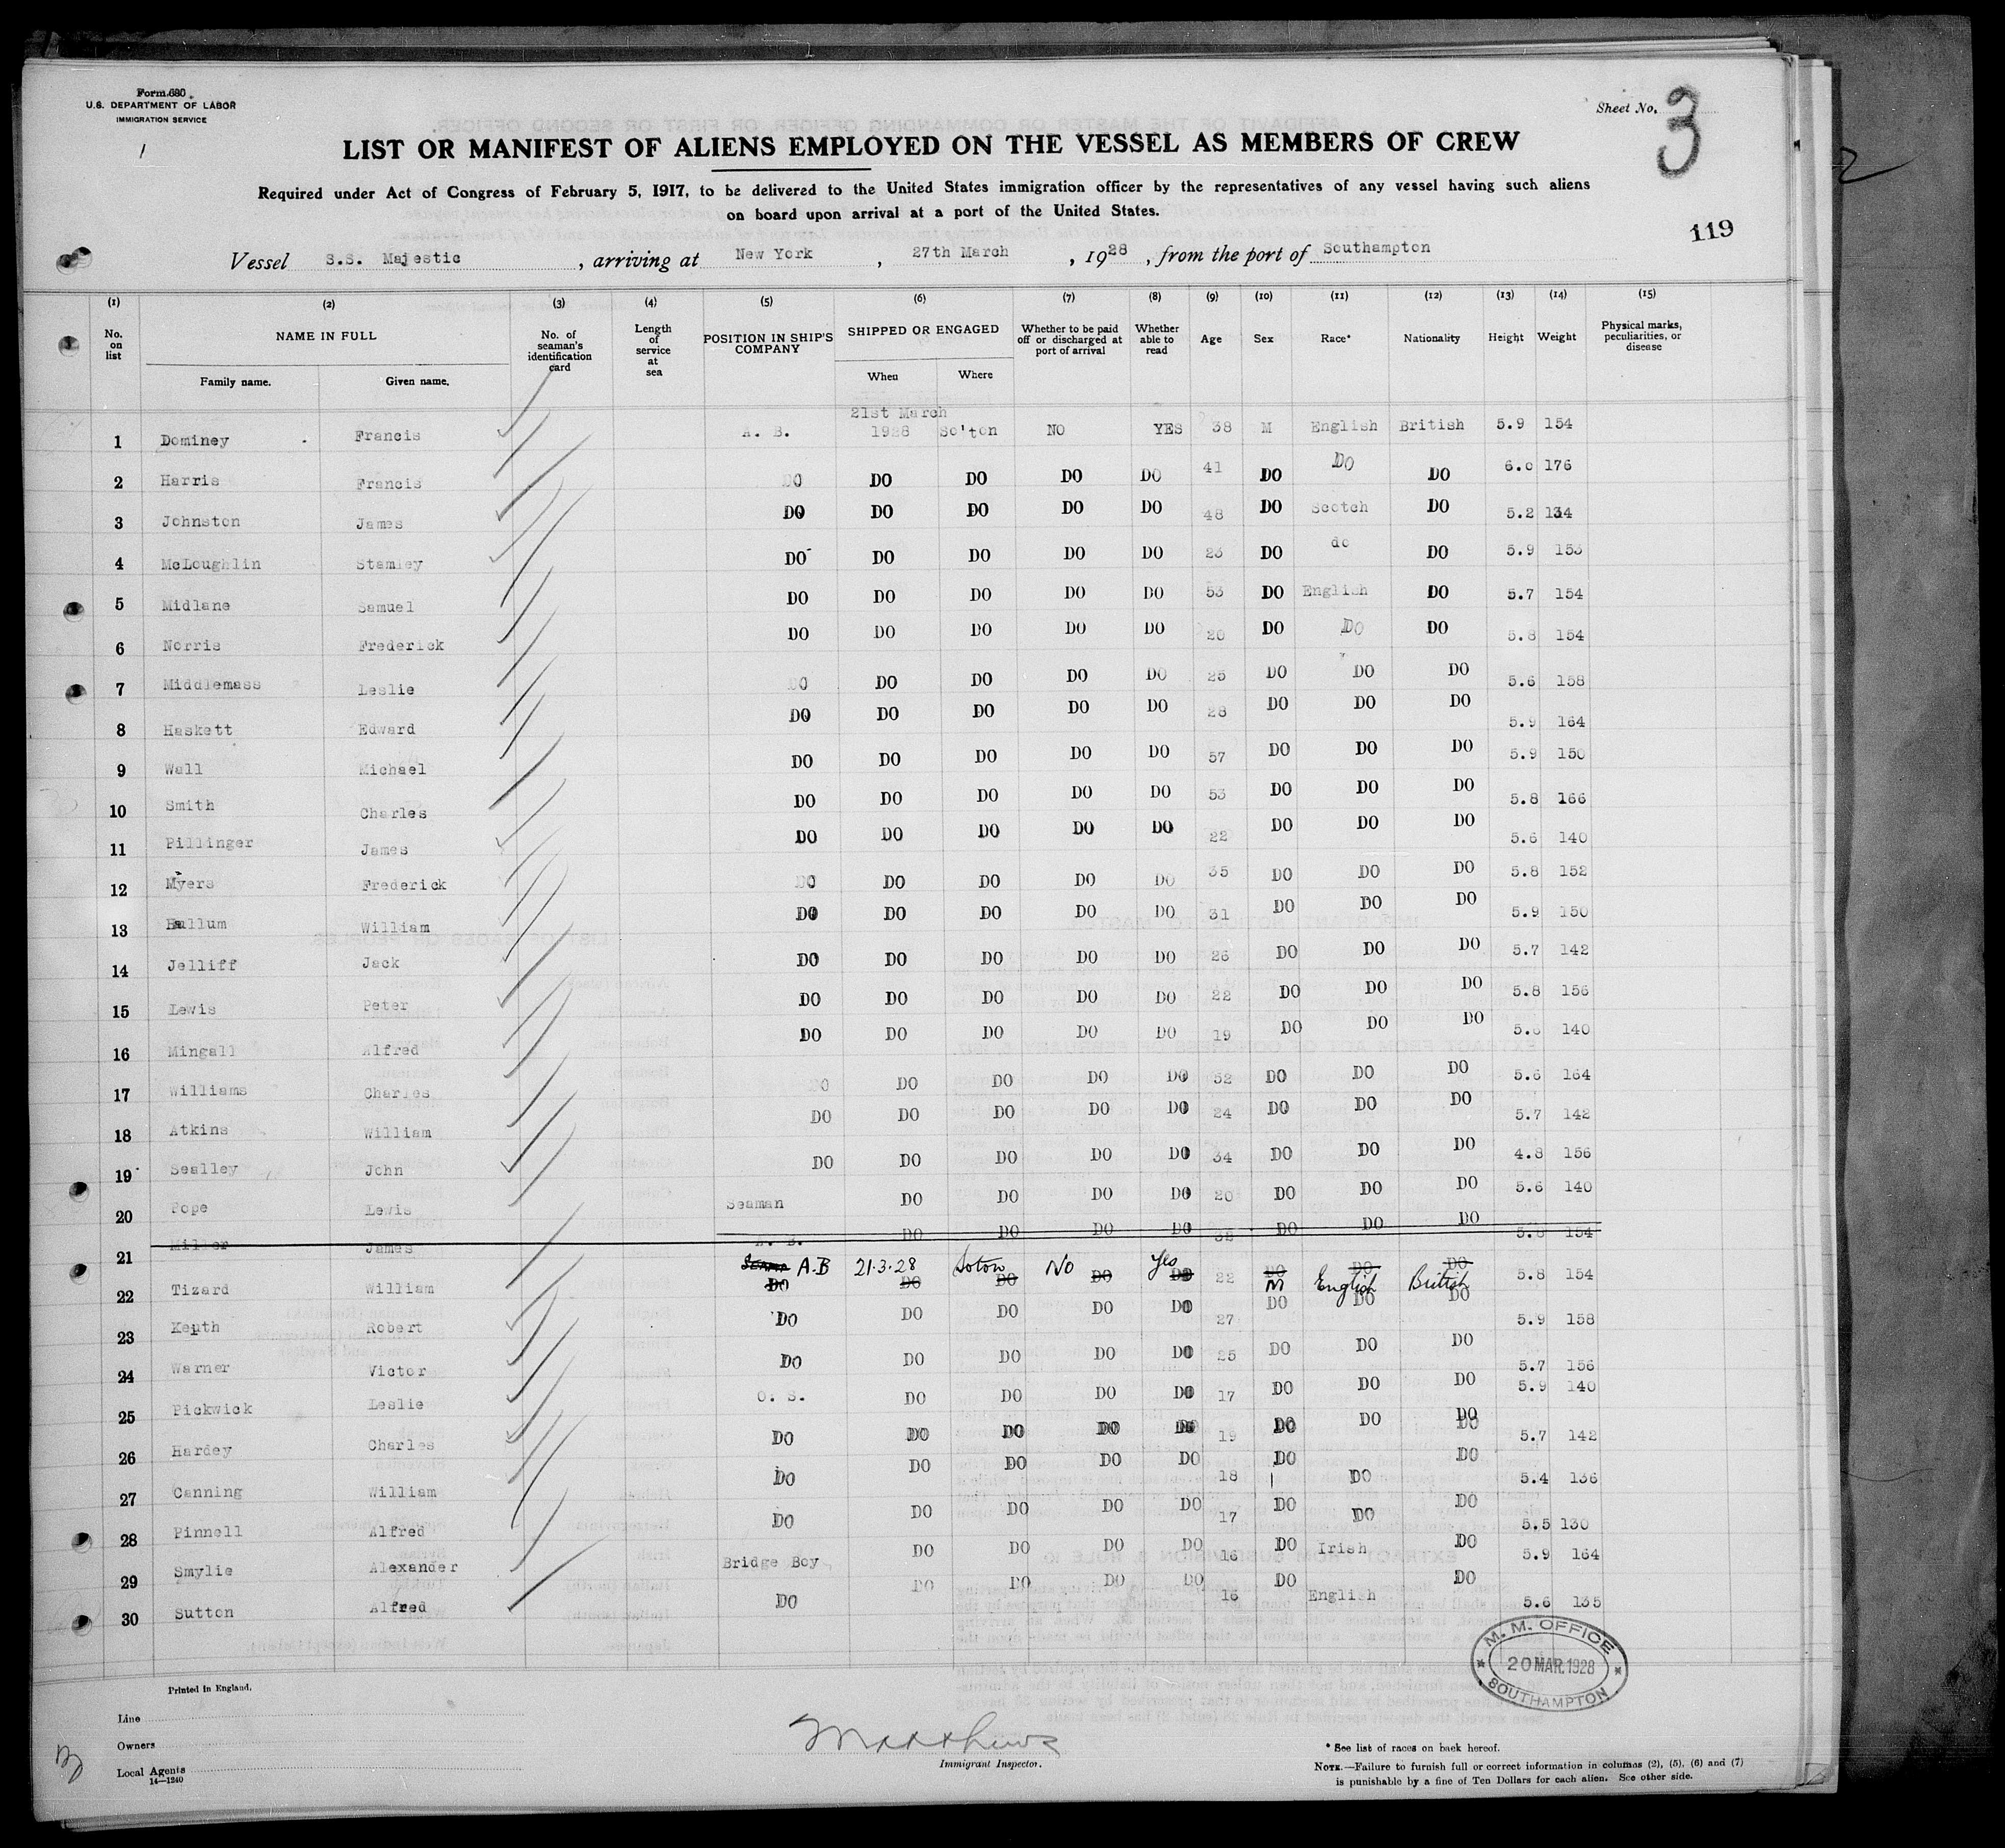 Form 680
U.S. DEPARTMENT OF LABOR
IMMIGRATION SERVICE
Sheet No. 3
LIST OR MANIFEST OF ALIENS EMPLOYED ON THE VESSEL AS MEMBERS OF CREW
Required under Act of Congress of February 5, 1917, to be delivered to the United States immigration officer by the representatives of any vessel having such aliens
on board upon arrival at a port of the United States.
119
Vessel S.S. Majestic, arriving at New York, 27th March, 1928, from the port of Southampton
(1) (2) (3) (4) (5) (6) (7) (8) (9) (10) (11) (12) (13) (14) (15)
No. on list NAME IN FULL No. of seaman's identification card Length of service at sea POSITION IN SHIP'S COMPANY SHIPPED OR ENGAGED Whether to be paid off or discharged at port of arrival Whether able to read Age Sex Race* Nationality Height Weight Physical marks, peculiarities, or disease
Family name. Given name. When Where
21st March
1 Dominey Francis A. B. 1928 So'ton NO YES 38 M English British 5.9 154
2 Harris Francis DO DO DO DO DO 41 DO DO DO 6.0 176
3 Johnston James DO DO DO DO DO 48 DO Scotch DO 5.2 134
4 McLoughlin Stamley DO DO DO DO DO 23 DO do DO 5.9 153
5 Midlane Samuel DO DO DO DO DO 53 DO English DO 5.7 154
6 Norris Frederick DO DO DO DO DO 20 DO DO DO 5.8 154
7 Middlemass Leslie DO DO DO DO DO 25 DO DO DO 5.6 158
8 Haskett Edward DO DO DO DO DO 28 DO DO DO 5.9 164
9 Wall Michael DO DO DO DO DO 57 DO DO DO 5.9 150
10 Smith Charles DO DO DO DO DO 53 DO DO DO 5.8 166
11 Pillinger James DO DO DO DO DO 22 DO DO DO 5.6 140
12 Myers Frederick DO DO DO DO DO 35 DO DO DO 5.8 152
13 Hallum William DO DO DO DO DO 31 DO DO DO 5.9 150
14 Jelliff Jack DO DO DO DO DO 26 DO DO DO 5.7 142
15 Lewis Peter DO DO DO DO DO 22 DO DO DO 5.8 156
16 Mingall Alfred DO DO DO DO DO 19 DO DO DO 140
17 Williams Charles DO DO DO DO DO 52 DO DO DO 5.6 164
18 Atkins William DO DO DO DO DO 24 DO DO DO 5.7 142
19 Sealley John DO DO DO DO DO 34 DO DO DO 4.8 156
20 Pope Lewis Seaman DO DO DO DO 20 DO DO DO 5.6 140
21 Miller James A. B. DO DO DO DO DO DO DO 5.8 154
22 Tizard William A.B 21.3.28 Soton No Yes 22 M English British 5.8 154
DO DO DO DO DO DO DO DO
23 Keuth Robert DO DO DO DO DO 27 DO DO DO 5.9 158
24 Warner Victor DO DO DO DO DO 25 DO DO DO 5.7 156
25 Pickwick Leslie O. S. DO DO DO DO 17 DO DO DO 5.9 140
26 Hardey Charles DO DO DO DO DO 19 DO DO DO 5.7 142
27 Canning William DO DO DO DO DO 18 DO DO DO 5.4 136
28 Pinnell Alfred DO DO DO DO DO 17 DO DO DO 5.5 130
29 Smylie Alexander Bridge Boy DO DO DO DO 16 DO Irish DO 5.9 164
30 Sutton Alfred DO DO DO DO DO 16 DO English DO 5.6 135
M. M. OFFICE
20 MAR. 1928
SOUTHAMPTON
Printed in England.
Line
Owners
Local Agents
14—1240
Matthews
Immigrant Inspector.
* See list of races on back hereof.
NOTE.—Failure to furnish full or correct information in columns (2), (5), (6) and (7)
is punishable by a fine of Ten Dollars for each alien. See other side.